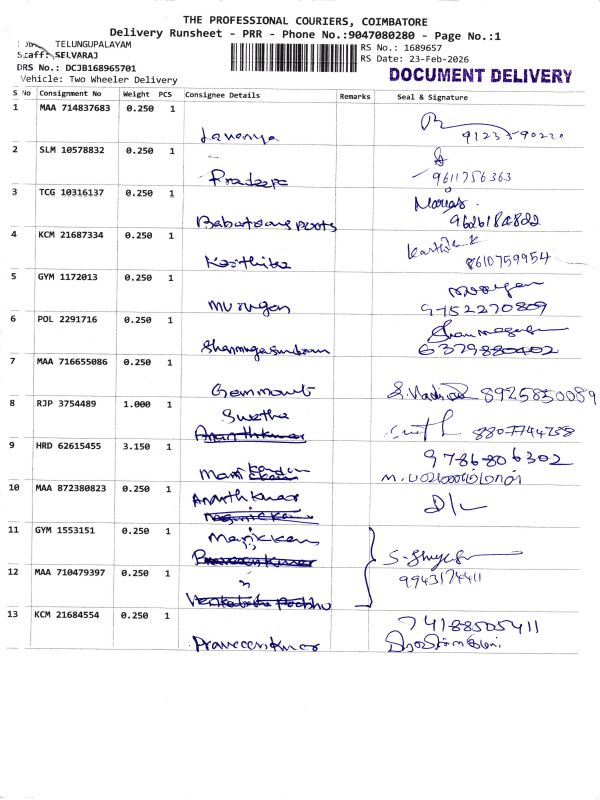 THE PROFESSIONAL COURIERS, COIMBATORE
Delivery Runsheet - PRR - Phone No.:9047080280 - Page No.:1
TELUNGUPALAYAM
Staff: SELVARAJ
DRS No.: DCJB168965701
Vehicle: Two Wheeler Delivery
RS No.: 1689657
RS Date: 23-Feb-2026
DOCUMENT DELIVERY
S No Consignment No Weight PCS Consignee Details Remarks Seal & Signature
1 MAA 714837683 0.250 1
Lavanya
2 SLM 10578832 0.250 1
Pradeepa 9611756363
3 TCG 10316137 0.250 1
4 KCM 21687334 0.250 1
Karthika 8610759954
5 GYM 1172013 0.250 1
Murugan 9752270809
6 POL 2291716 0.250 1
Shanmugasundram 6379880402
7 MAA 716655086 0.250 1
8925850089
8 RJP 3754489 1.000 1
Swetha
Ananthkumar
9 HRD 62615455 3.150 1
9786806302
10 MAA 872380823 0.250 1
Ananth Kumar
11 GYM 1553151 0.250 1
Manickam
Praveen Kumar
12 MAA 710479397 0.250 1
9943174411
13 KCM 21684554 0.250 1
74188505411
Praveenkumar